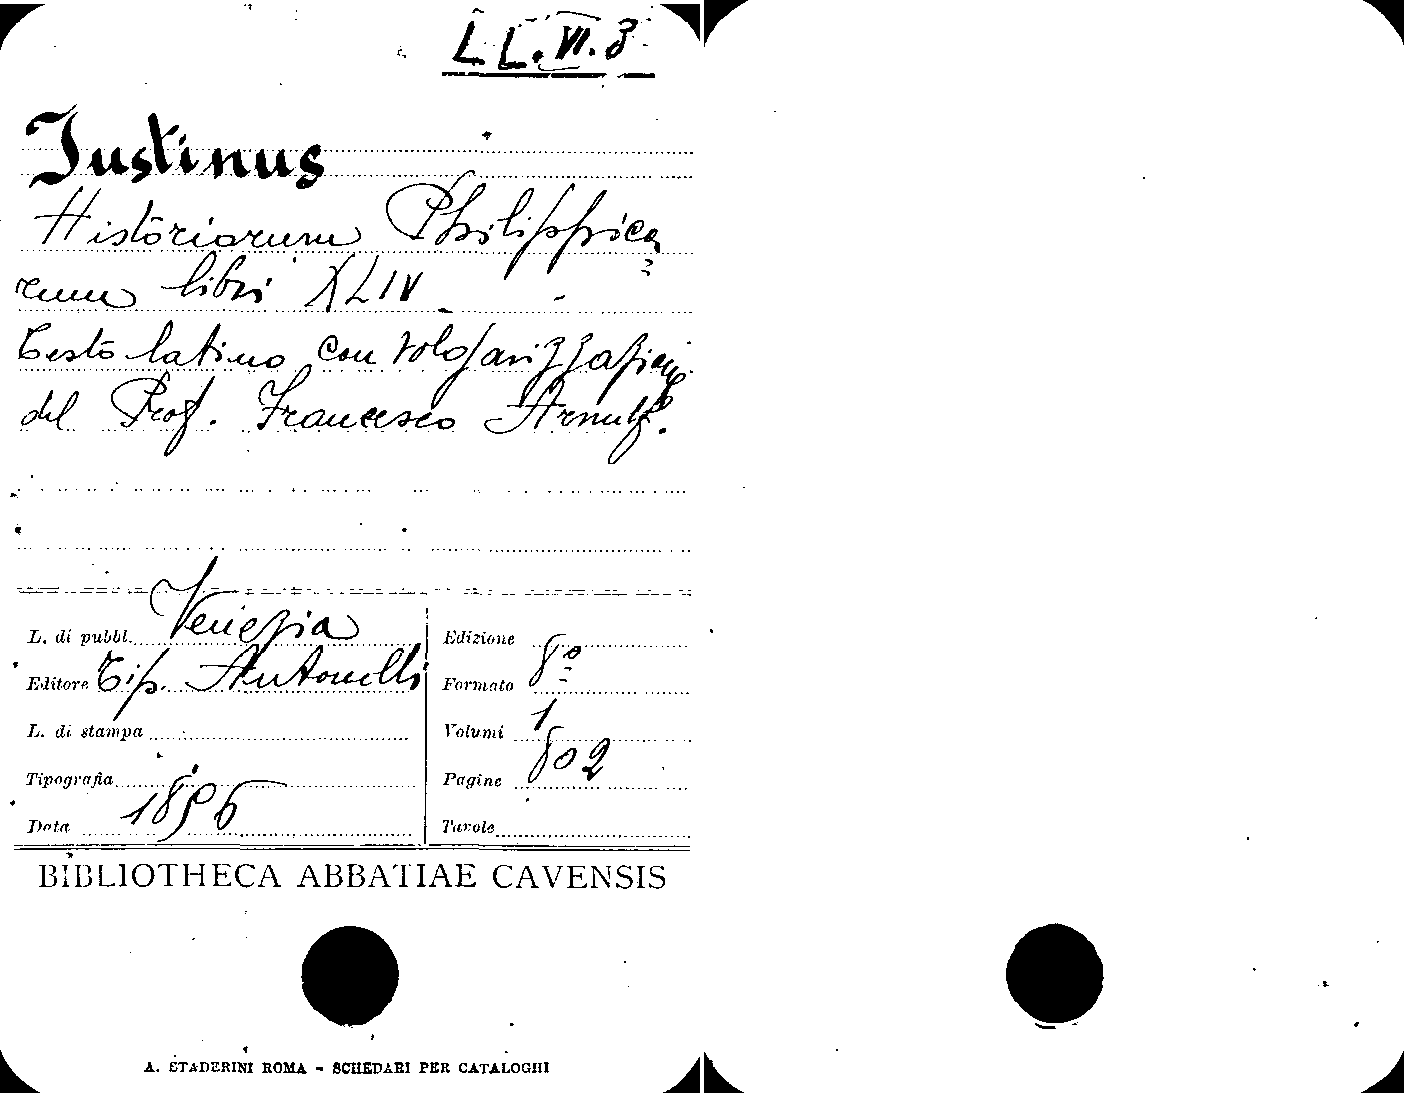 LL.VI.3
Justinus
Historiarum Philippica
rum libri XLIV
Testo latino con volgarizzazione
del Prof. Francesco Arnulf.
L. di pubbl. Venezia
Editore Tip. Antonelli
L. di stampa
Tipografia
Data 1856
Edizione
Formato 8º
Volumi 1
Pagine 802
Tavole
BIBLIOTHECA ABBATIAE CAVENSIS
A. STADERINI ROMA - SCHEDARI PER CATALOGHI